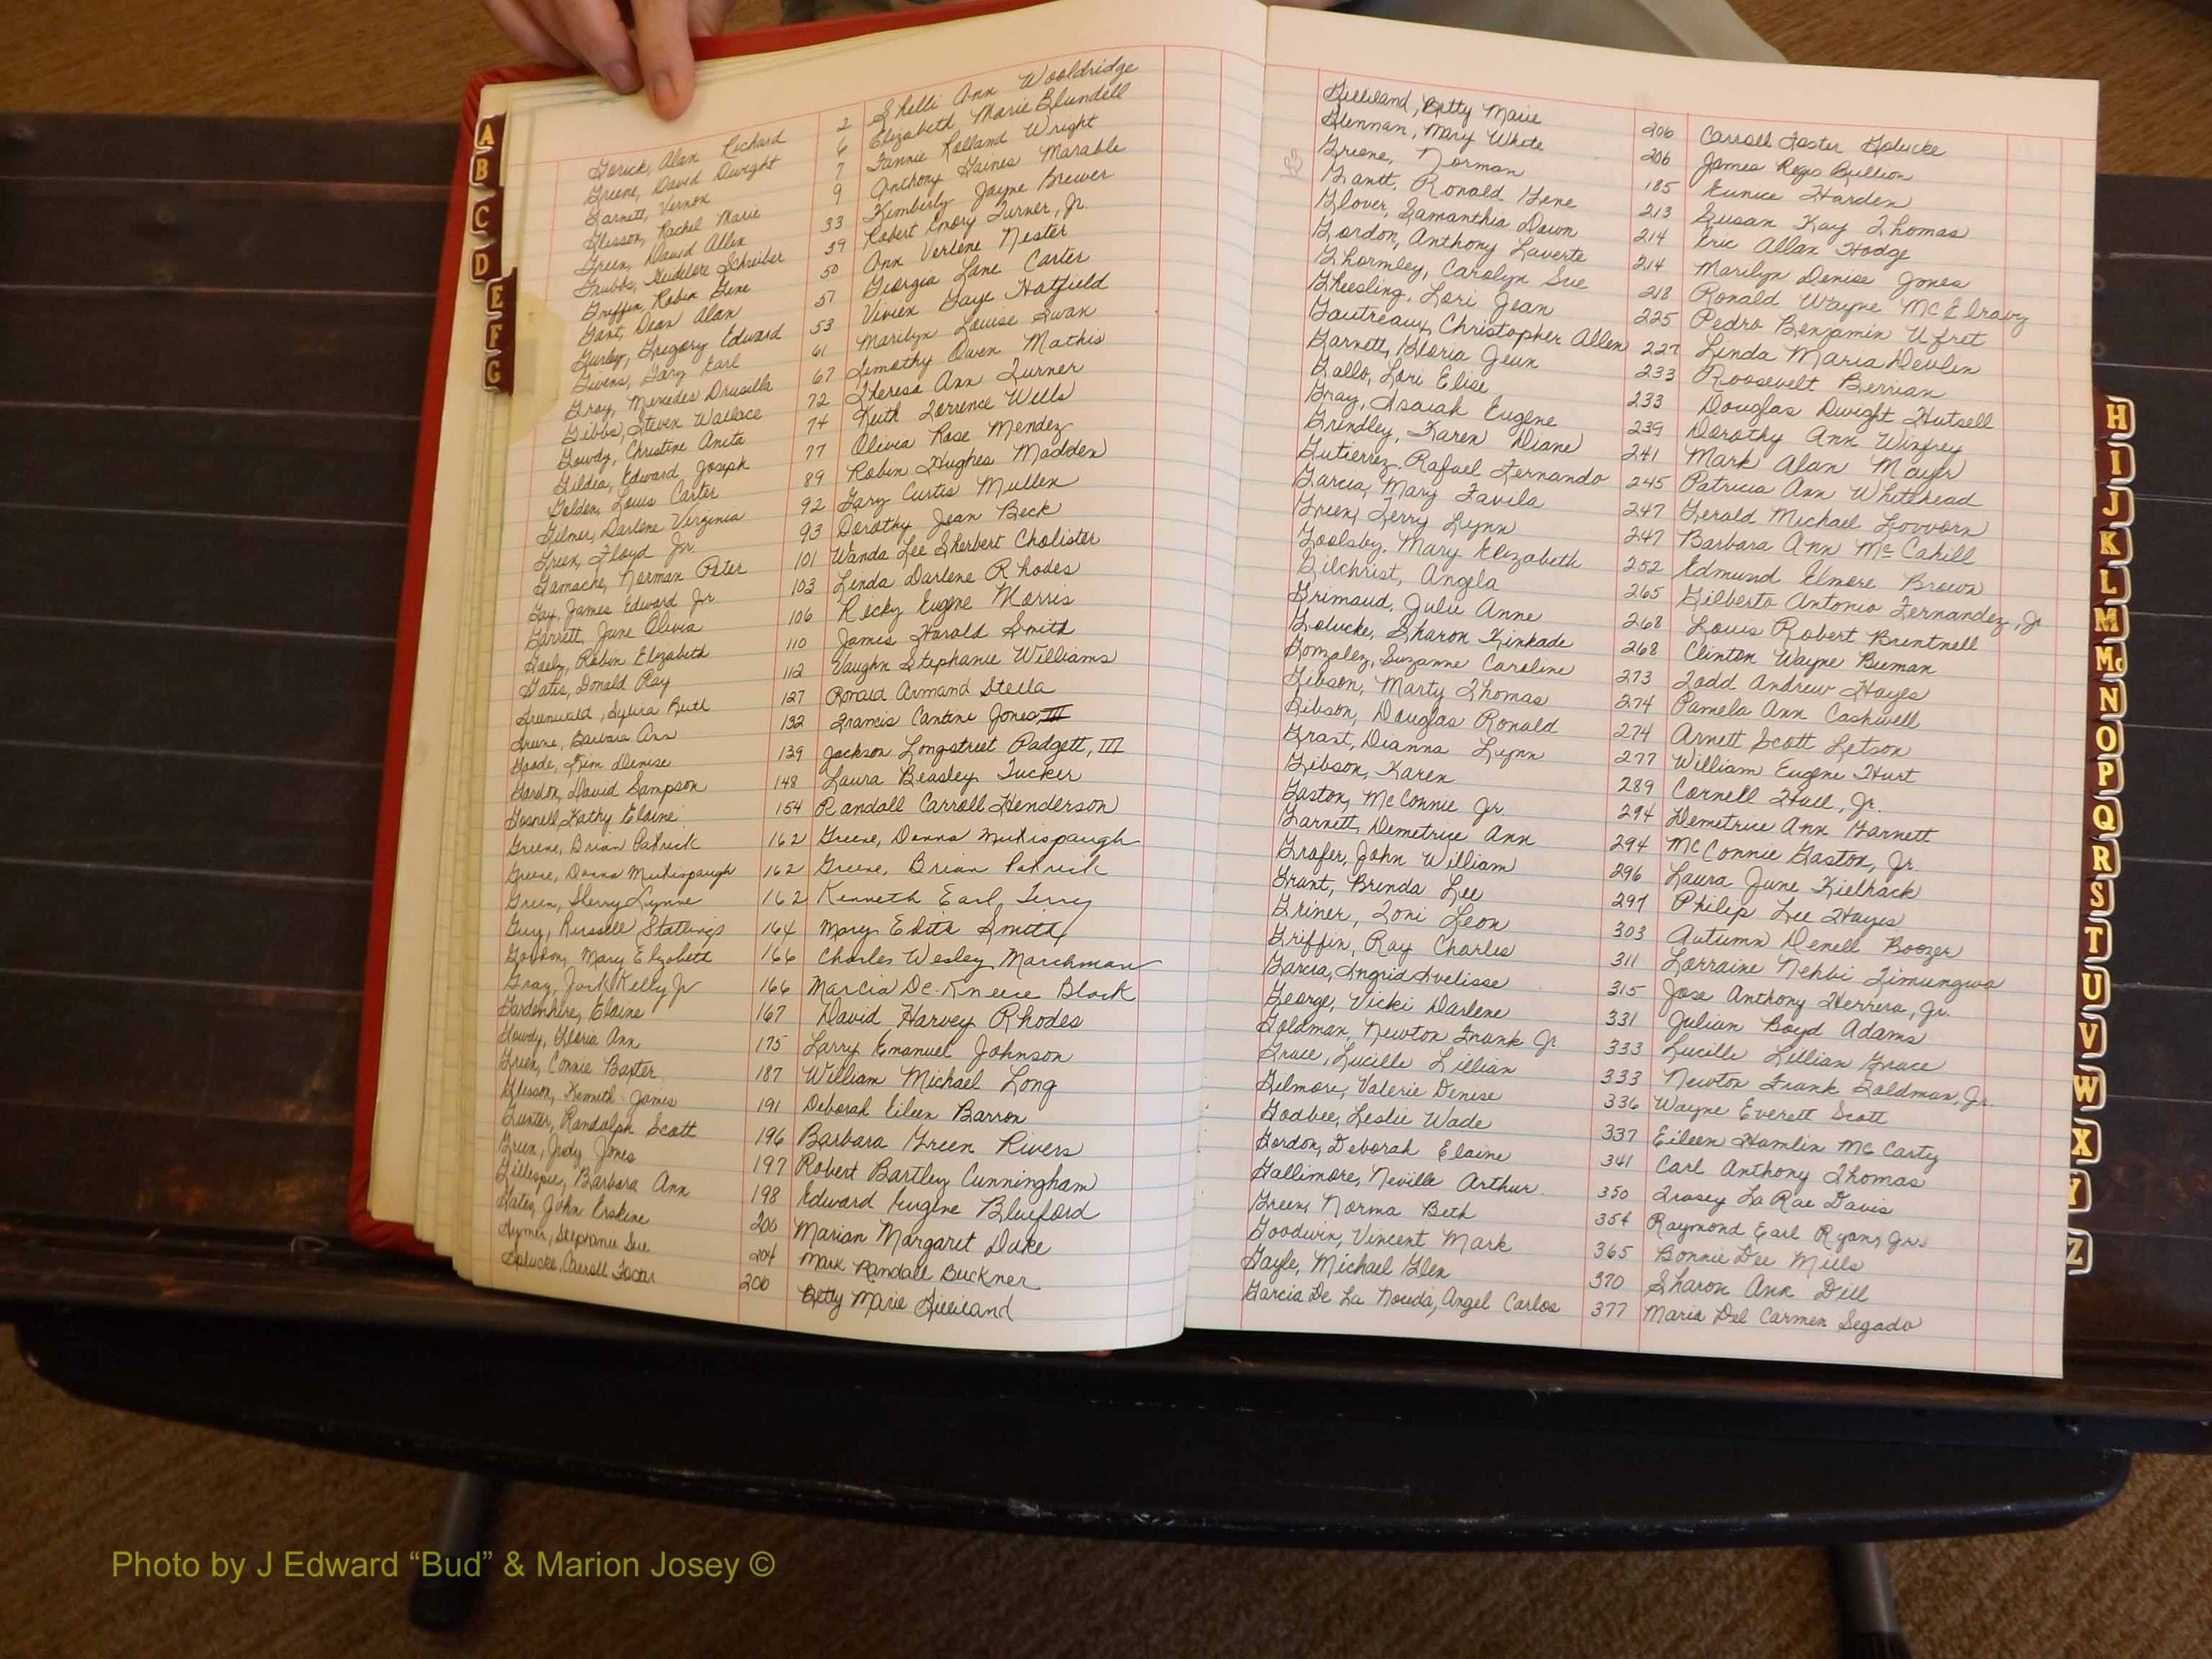 Gorick, Alan Richard 2 Shelli Ann Wooldridge
Greene, David Dwight 6 Elizabeth Marie Blundell
Garnett, Vernon 7 Fannie Rolland Wright
Glisson, Rachel Marie 9 Anthony Gaines Marable
Green, David Allen 33 Kimberly Jayne Brewer
Grubbs, Heidelore Schreiber 39 Robert Emory Turner, Jr.
Griffin, Robin Gene 50 Ann Verlene Nester
Gant, Dean Alan 51 Georgia Lane Carter
Gurley, Gregory Edward 53 Vivien Gaye Hatfield
Givens, Gary Earl 61 Marilyn Louise Swan
Gray, Mercedes Drusilla 67 Timothy Owen Mathis
Gibbs, Steven Wallace 72 Theresa Ann Turner
Gowdy, Christine Anita 74 Keith Torrence Wells
Gildea, Edward Joseph 77 Olivia Rose Mendez
Golden, Louis Carter 89 Robin Hughes Madden
Gilmer, Darlene Virginia 92 Gary Curtis Mullen
Green, Floyd Jr. 93 Dorothy Jean Beck
Gamache, Norman Peter 101 Wanda Lee Sherbert Cholister
Gay, James Edward Jr 103 Linda Darlene Rhodes
Garrett, June Olivia 106 Ricky Eugene Morris
Robin Elizabeth 110 James Harold Smith
Gates, Donald Ray 112 Vaughn Stephanie Williams
Greenwald, Sylvia Ruth 127 Ronald Armand Stella
Greene, Barbara Ann 132 Francis Cantine Jones III
Goode, Kim Denise 139 Jackson Longstreet Padgett, III
Gordon, David Sampson 148 Laura Beasley Tucker
Gosnell, Kathy Elaine 154 Randall Carroll Henderson
Greene, Brian Patrick 162 Greene, Donna Mirkispaugh
Greene, Donna Mirkispaugh 162 Greene, Brian Patrick
Green, Sherry Lynne 162 Kenneth Earl Terry
Guy, Russell Stallings 164 Mary Edith Smith
Gordon, Mary Elizabeth 166 Charles Wesley Marchman
Gray, Jack Kelly Jr 166 Marcia De-Kneece Black
Gardenhire, Elaine 167 David Harvey Rhodes
Gowdy, Gloria Ann 175 Larry Emanuel Johnson
Green, Connie Baxter 187 William Michael Long
Glisson, Kenneth James 191 Deborah Eileen Barron
Gunter, Randolph Scott 196 Barbara Green Rivers
Green, Judy Jones 197 Robert Bartley Cunningham
Gillespie, Barbara Ann 198 Edward Eugene Blueford
Gates, John Erskine 200 Marian Margaret Duke
Gaymer, Stephanie Sue 204 Mark Randall Buckner
Golucke, Carroll Foster 206 Betty Marie Gilleland
Gilleland, Betty Marie 206 Carroll Foster Golucke
Glennan, Mary White 206 James Regis Bullion
Greene, Norman 185 Eunice Harden
Gantt, Ronald Gene 213 Susan Kay Thomas
Glover, Samantha Dawn 214 Eric Allan Hodge
Gordon, Anthony Laverte 214 Marilyn Denise Jones
Ghormley, Carolyn Sue 218 Ronald Wayne McElravy
Gheesling, Lori Jean 225 Pedro Benjamin Ufret
Gautreaux, Christopher Allen 227 Linda Maria Devlin
Garnett, Gloria Jean 233 Roosevelt Berrian
Gallo, Lori Elise 233 Douglas Dwight Hutsell
Gray, Isaiah Eugene 239 Dorothy Ann Winfrey
Grindley, Karen Diane 241 Mark Alan Mayer
Gutierrez, Rafael Fernando 245 Patricia Ann Whitehead
Garcia, Mary Favila 247 Gerald Michael Lovvorn
Green, Terry Lynn 247 Barbara Ann McCahill
Goolsby, Mary Elizabeth 252 Edmund Elmore Brown
Gilchrist, Angela 265 Gilberto Antonio Fernandez, Jr
Grimaud, Julie Anne 268 Louis Robert Brentnell
Golucke, Sharon Kinkade 268 Clinton Wayne Beeman
Gonzalez, Suzanne Caroline 273 Todd Andrew Hayes
Gibson, Marty Thomas 274 Pamela Ann Cashwell
Gibson, Douglas Ronald 274 Arnett Scott Letson
Grant, Dianna Lynn 277 William Eugene Hurt
Gibson, Karen 289 Cornell Hall, Jr.
Gaston, McConnie Jr. 294 Demetrice Ann Garnett
Garnett, Demetrice Ann 294 McConnie Gaston, Jr.
Grafer, John William 296 Laura June Kielhack
Grant, Brenda Lee 297 Philip Lee Hayes
Griner, Toni Leon 303 Autumn Denell Boozer
Griffin, Ray Charles 311 Lorraine Nehbi Timungwa
Garcia, Ingrid Ivelisse 315 Jose Anthony Herrera, Jr.
George, Vicki Darlene 331 Julian Boyd Adams
Goldman, Newton Frank Jr 333 Lucille Lillian Grace
Grace, Lucille Lillian 333 Newton Frank Goldman, Jr.
Gilmore, Valerie Denise 336 Wayne Everett Scott
Godbee, Leslie Wade 337 Eileen Hamlin McCarty
Gordon, Deborah Elaine 341 Carl Anthony Thomas
Gallimore, Neville Arthur 350 Trasey La Rae Davis
Green, Norma Beth 354 Raymond Earl Ryans, Jr.
Goodwin, Vincent Mark 365 Bonnie Dee Mills
Gayle, Michael Glen 370 Sharon Ann Dill
Garcia De La Noceda, Angel Carlos 377 Maria Del Carmen Segado
A
B
C
D
E
F
G
H
I
J
K
L
M
Mc
N
O
P
Q
R
S
T
U
V
W
X
Y
Z
Photo by J Edward “Bud” & Marion Josey ©